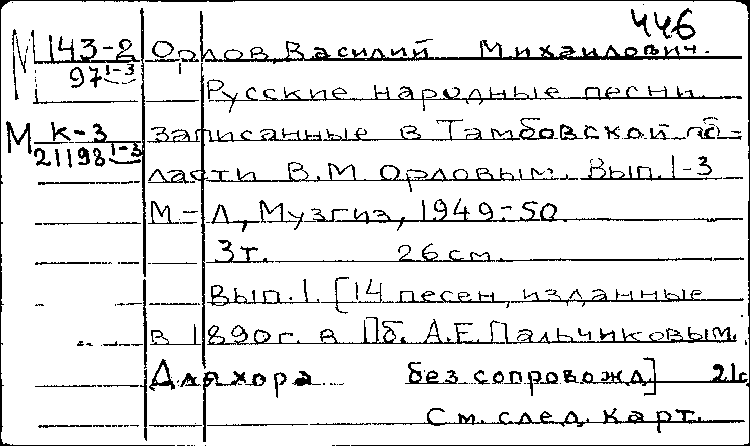 446
М 143-2 Орлов, Василий Михайлович.
97 1-3
Русские народные песни
М К-3 записанные в Тамбовской об=
21193 1-3
ласти В.М. Орловым. Вып. 1-3
М-Л, Музгиз, 1949-50.
3т. 26 см.
Вып. 1. [14 песен, изданные
в 1890г. в Пб. А.Е. Пальчиковым.
Для хора без сопровожд.] 21с
См. след. карт.